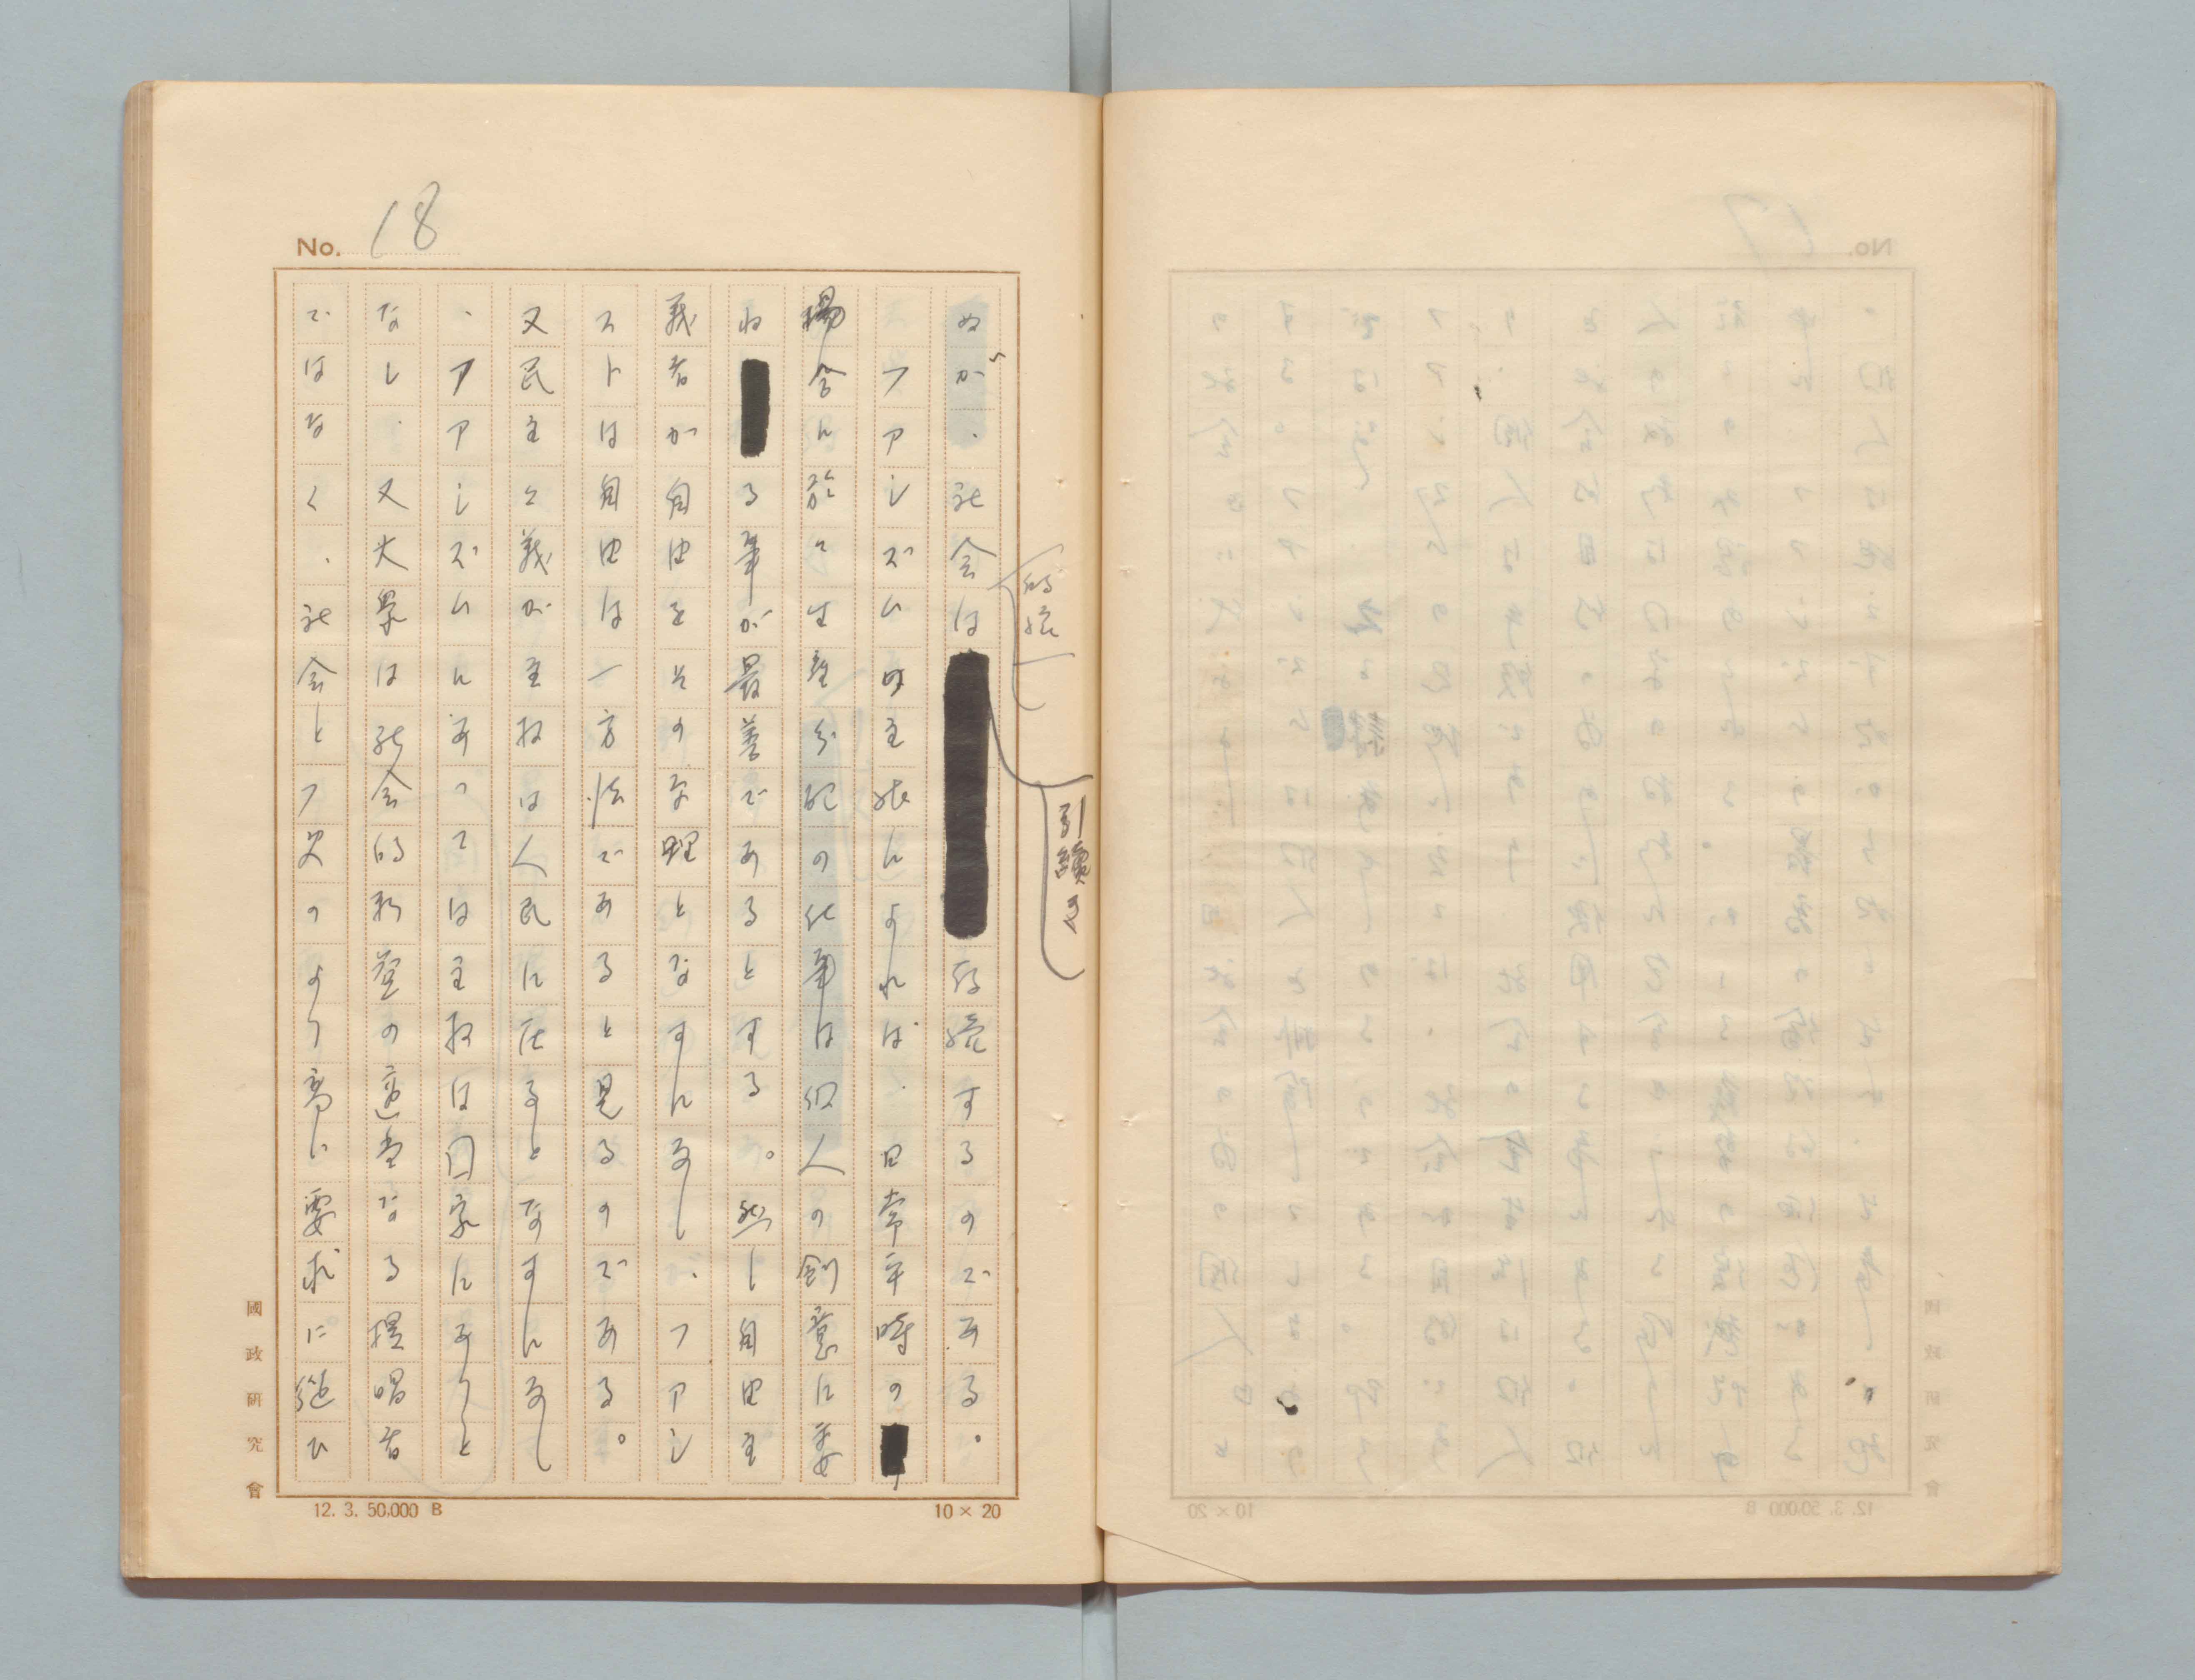 No. 18
ぬが、社会は
引續き
存続するのである。
ファシズムの主張によれば、日常平時の
場合に於て生産分配の仕事は個人の創意に委
ねる事が最善であるとする。然し自由主
義者が自由をその原理となすに対し、ファシ
ストは自由は一方法であると見るのである。
又民主々義が主权は人民に在るとなすに対し
、ファシズムに於ては主权は国家にありと
なし、又大衆は社会的形態の適当なる提唱者
ではなく、社会と
より高い要求に
國政研究會
12. 3. 50,000 B
10 × 20